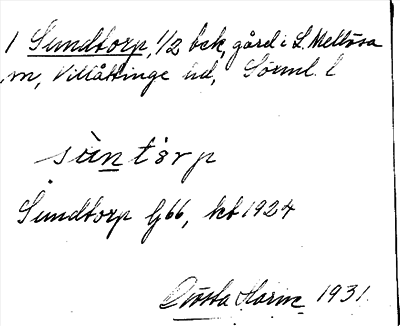 1 Sundtorp, 1/2 bck, gård i L. Mellösa
m, Villåttinge hd, Sörml. l
sùntɵrp
Sundtorp G66, kb 1924
Gösta Holm 1931.